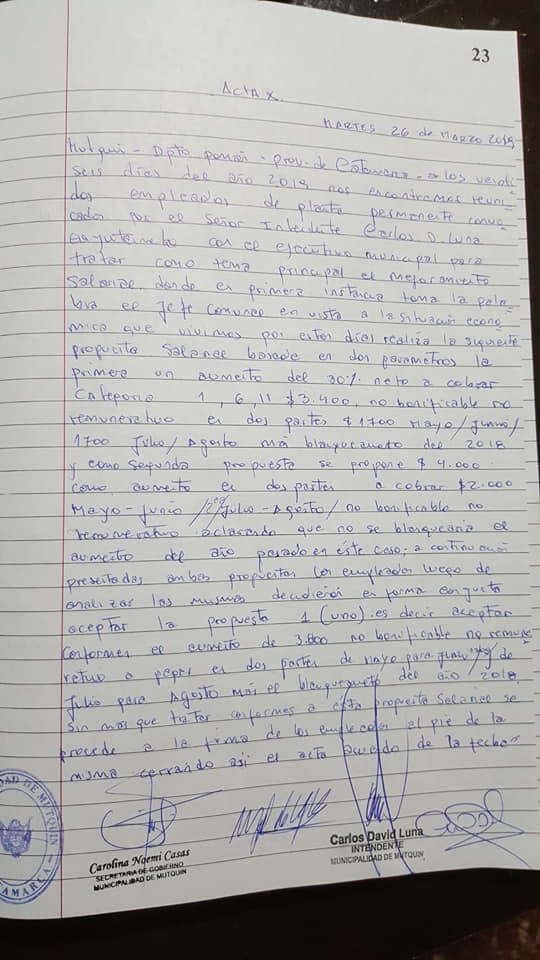 23
Acta X.
MARTES 26 de MARZO 2019
Mutquin - Dpto Pomán - Prov. de Catamarca - a los veinti
seis días del año 2019 nos encontramos reuni
dos empleados de planta permanente convo
cados por el Señor Intendente Carlos D. Luna
conjuntamente con el ejecutivo municipal para
tratar como tema principal el mejoramiento
Salarial, donde en primera instancia toma la pala
bra el Jefe Comunal en vista a la situación econo
mica que vivimos por estos días realiza la siguiente
propuesta Salarial basada en dos parametros la
primera un aumento del 30% neto a cobrar
Categoria 1, 6, 11 $3.400, no bonificable no
remunerativo en dos partes $1700 Mayo/Junio/
1700 Julio/Agosto más blanqueamiento del 2018
y como Segunda propuesta se propone $4.000
como aumento en dos partes a cobrar $2.000
Mayo-Junio/ Julio-Agosto/ no bonificable no
remunerativo aclarando que no se blanquearia el
aumento del año pasado en éste caso; a continuación
presentadas ambas propuestas los empleados luego de
analizar las mismas decidieron en forma conjunta
aceptar la propuesta 1 (uno). es decir aceptar
conformes el aumento de no bonificable no remune
rativo a pagar en dos partes de mayo para Junio y de
Julio para Agosto más el blanqueamiento del año 2018.
Sin más que tratar conformes a esta propuesta Salarial se
procede a la firma de los empleados al pie de la
misma cerrando asi el acta de la fecha
Carolina Noemi Casas
SECRETARIA DE GOBIERNO
MUNICIPALIDAD DE MUTQUIN
Carlos David Luna
INTENDENTE
MUNICIPALIDAD DE MUTQUIN
DAD DE MUTQUIN
AMARCA